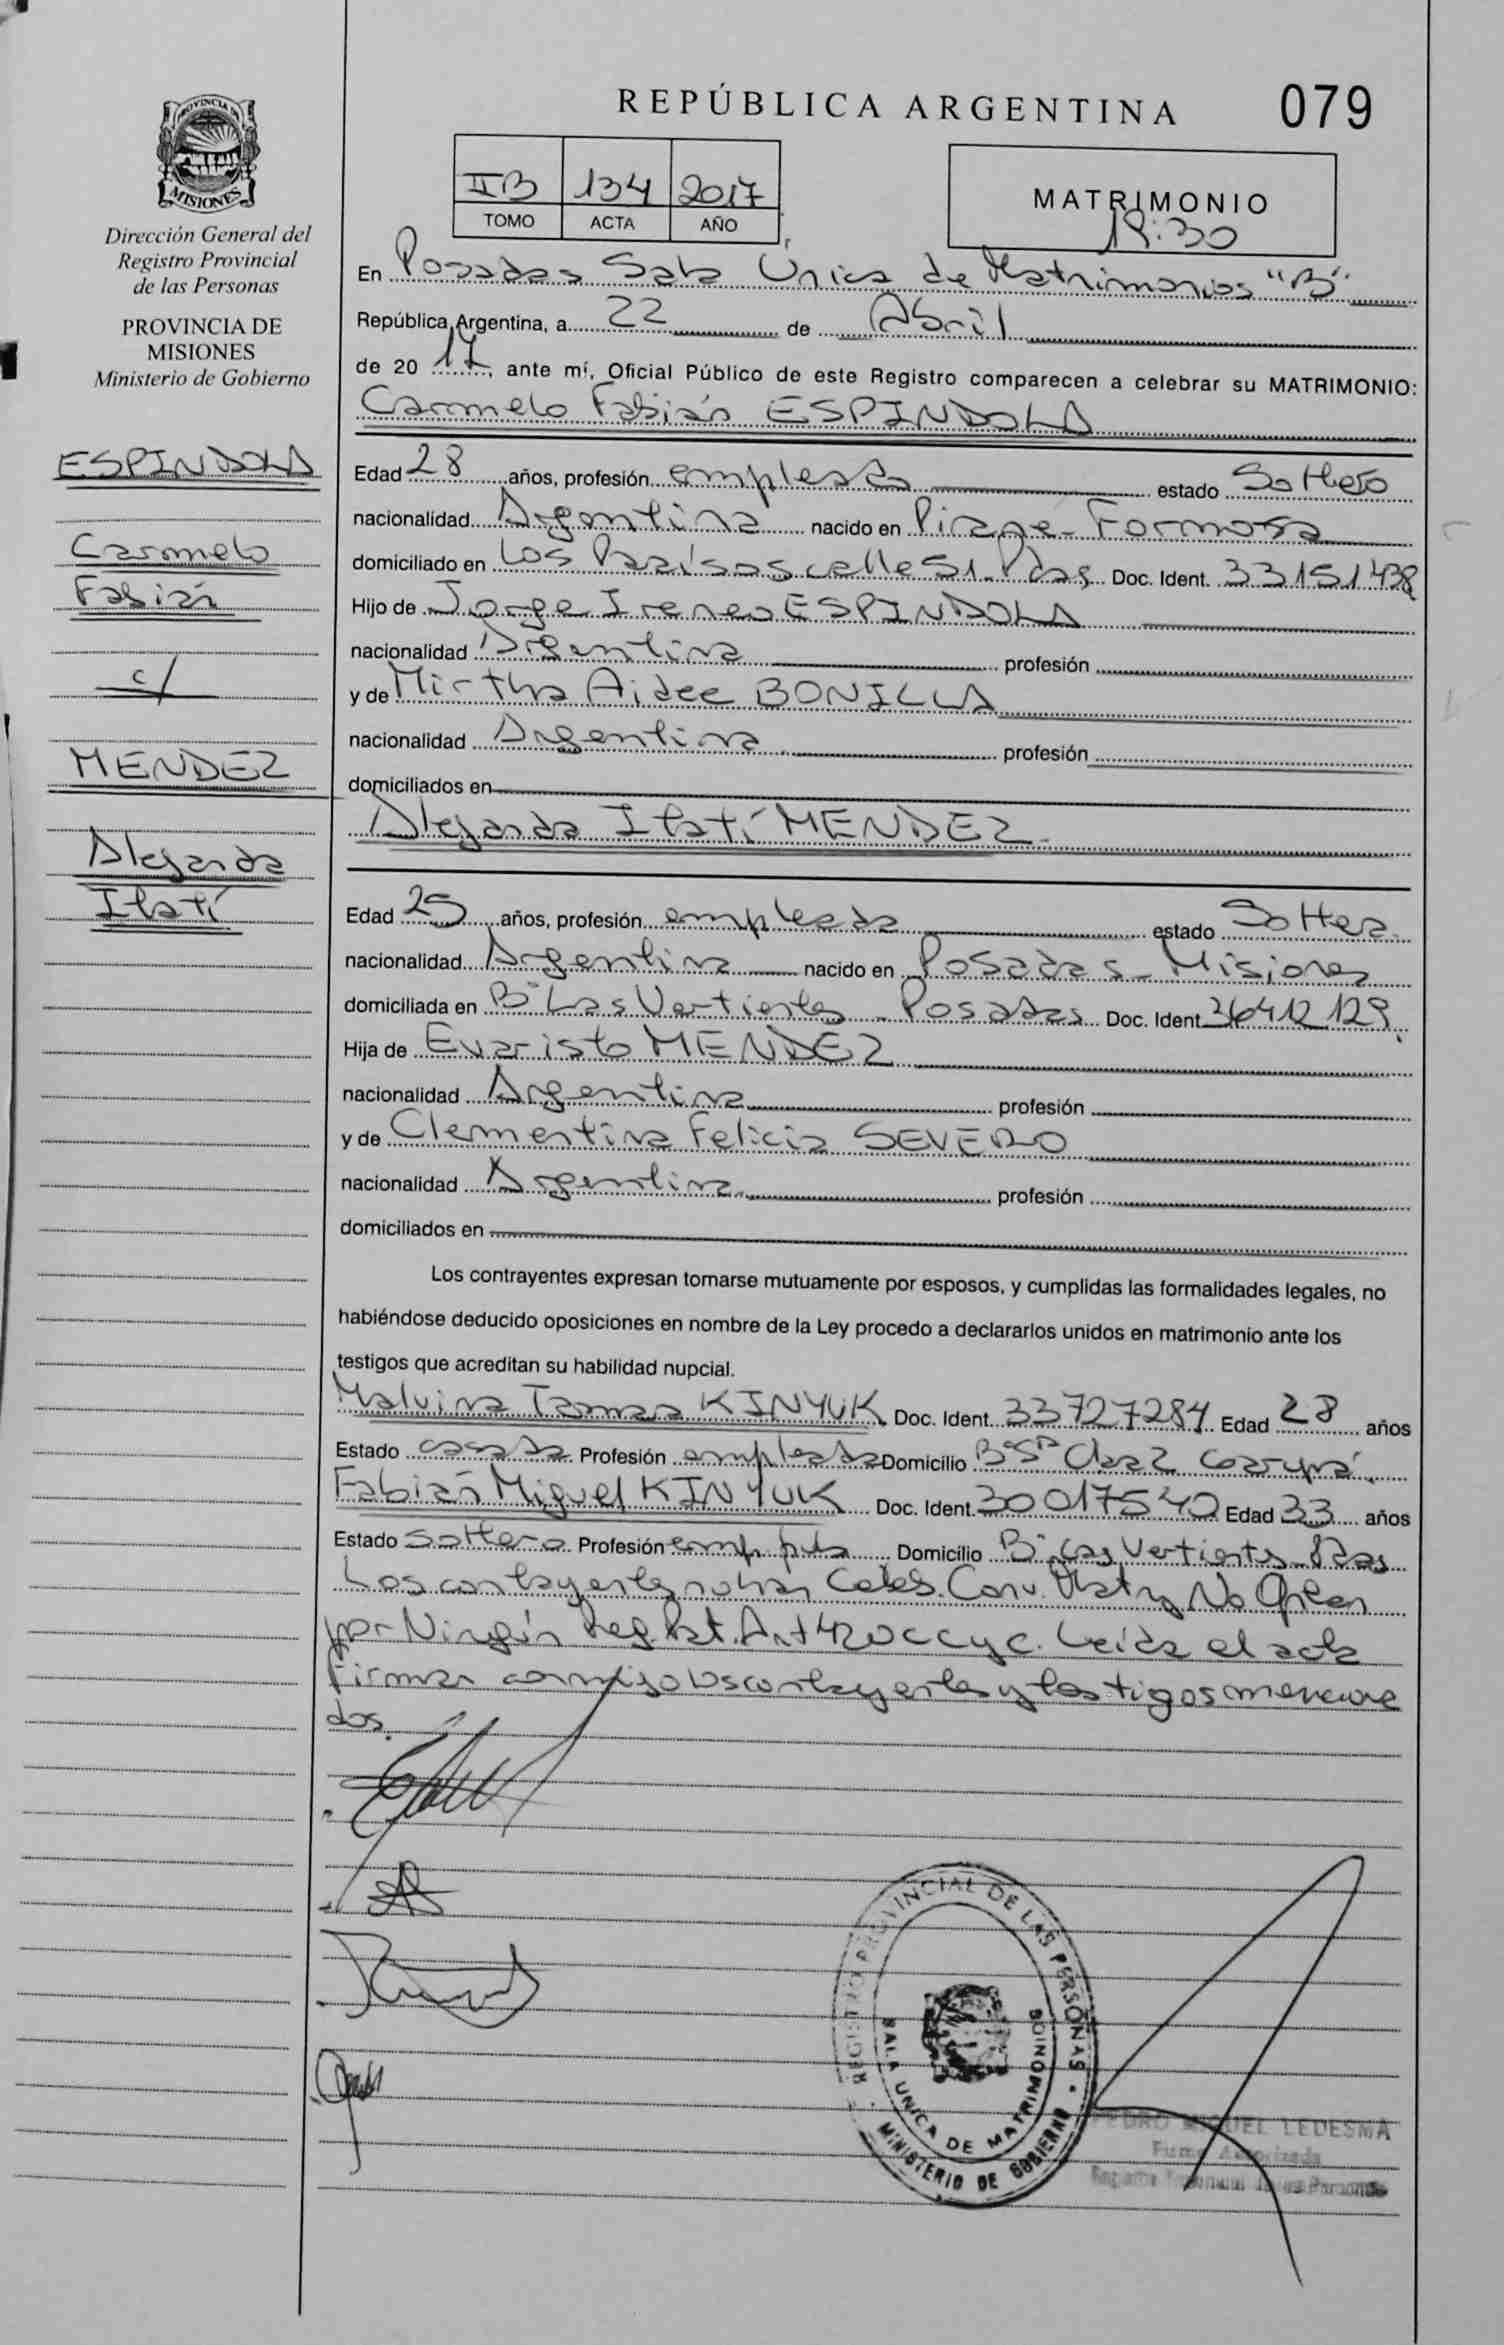 REPÚBLICA ARGENTINA
079
PROVINCIA
MISIONES
Dirección General del
Registro Provincial
de las Personas
PROVINCIA DE
MISIONES
Ministerio de Gobierno
ESPINDOLA
Carmelo
Fabián
c/
MENDEZ
Alejanda
Itatí
IIB 134 2017
TOMO ACTA AÑO
MATRIMONIO
19:30
En Posadas Sala Unica de Matrimonios "B"
República Argentina, a 22 de Abril
de 2017, ante mí, Oficial Público de este Registro comparecen a celebrar su MATRIMONIO:
Carmelo Fabián ESPINDOLA
Edad 28 años, profesión empleado estado Soltero
nacionalidad Argentina nacido en Pirané - Formosa
domiciliado en Los Paraísos calle 51 - Pdas Doc. Ident. 33151438
Hijo de Jorge Ireneo ESPINDOLA
nacionalidad Argentina profesión
y de Mirtha Aidee BONILLA
nacionalidad Argentina profesión
domiciliados en
Alejanda Itatí MENDEZ
Edad 25 años, profesión empleada estado Soltera
nacionalidad Argentina nacido en Posadas - Misiones
domiciliada en B° Las Vertientes - Posadas Doc. Ident 36412129
Hija de Evaristo MENDEZ
nacionalidad Argentina profesión
y de Clementina Felicia SEVERO
nacionalidad Argentina profesión
domiciliados en
Los contrayentes expresan tomarse mutuamente por esposos, y cumplidas las formalidades legales, no
habiéndose deducido oposiciones en nombre de la Ley procedo a declararlos unidos en matrimonio ante los
testigos que acreditan su habilidad nupcial.
Malvina Tamara KINYUK Doc. Ident. 33727284 Edad 28 años
Estado casada Profesión empleada Domicilio B° Garupá
Fabián Miguel KINYUK Doc. Ident. 30017540 Edad 33 años
Estado Soltero Profesión emp. pub Domicilio B° Las Vertientes - Pdas
Los contrayentes no han Celeb. Conv. Matr y No Optan
por Ningún Reg. Pat. Art 420 CCyC. Leída el acta
Firman conmigo los contrayentes y testigos menciona
dos.
REGISTRO PROVINCIAL DE LAS PERSONAS
SALA UNICA DE MATRIMONIOS
MINISTERIO DE GOBIERNO
PEDRO MIGUEL LEDESMA
Firma Autorizada
Registro Provincial de las Personas